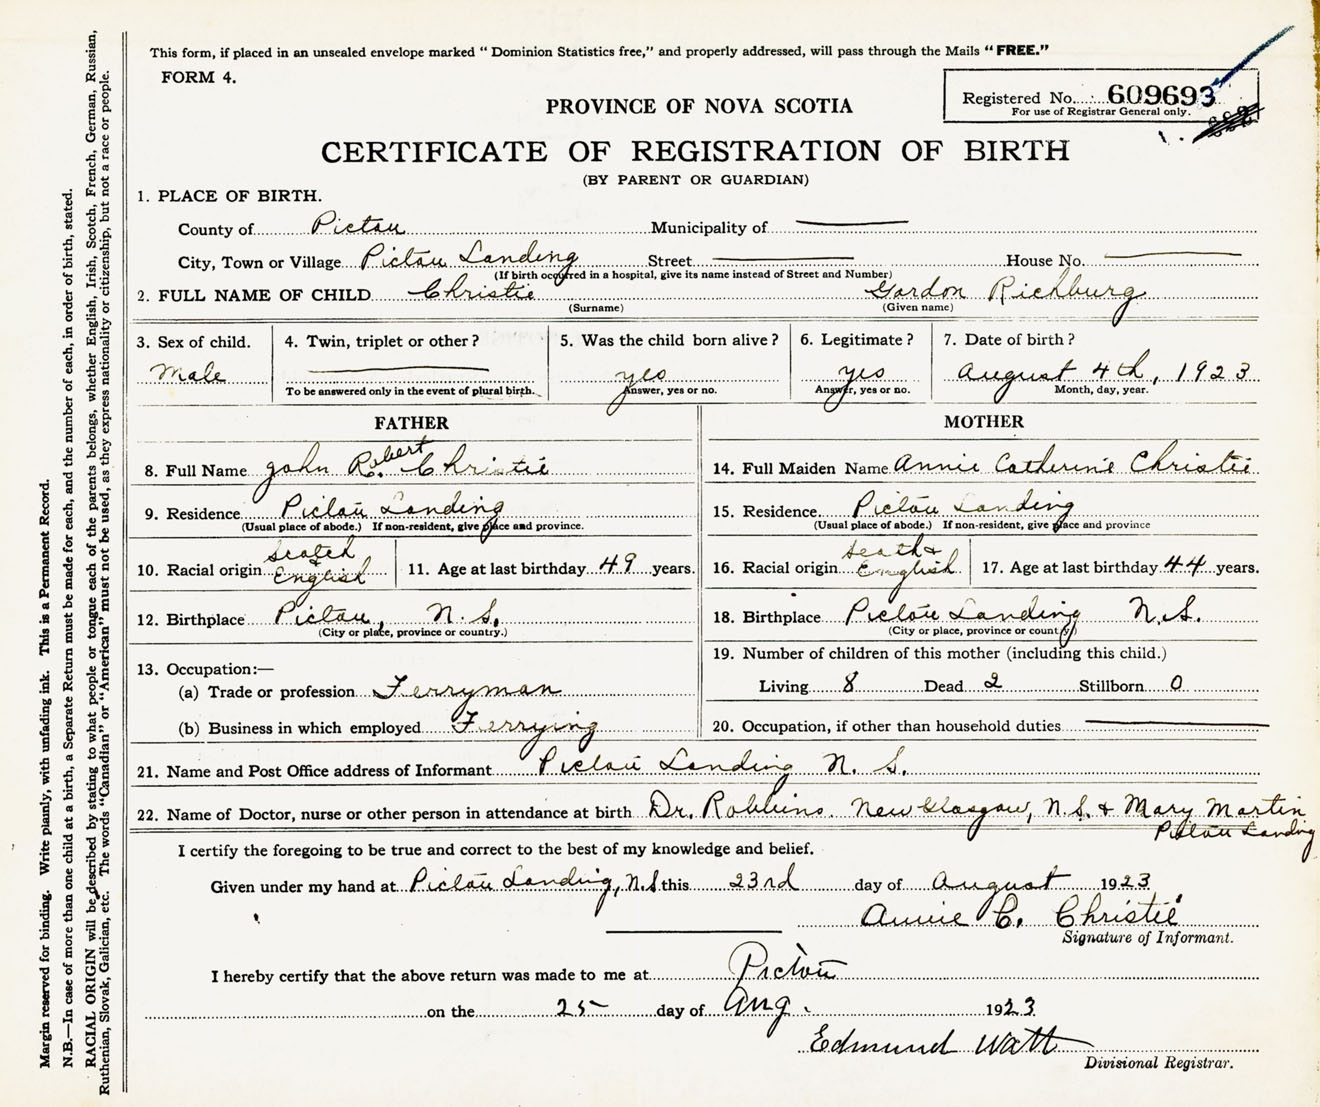 This form, if placed in an unsealed envelope marked "Dominion Statistics free," and properly addressed, will pass through the Mails "FREE."
FORM 4.
Registered No. 609693
For use of Registrar General only.
PROVINCE OF NOVA SCOTIA
CERTIFICATE OF REGISTRATION OF BIRTH
(BY PARENT OR GUARDIAN)
1. PLACE OF BIRTH.
County of Pictou Municipality of
City, Town or Village Pictou Landing Street House No.
(If birth occurred in a hospital, give its name instead of Street and Number)
2. FULL NAME OF CHILD Christie Gordon Richburg
(Surname) (Given name)
3. Sex of child. 4. Twin, triplet or other? 5. Was the child born alive? 6. Legitimate? 7. Date of birth?
Male yes yes August 4th, 1923
To be answered only in the event of plural birth. Answer, yes or no. Answer, yes or no. Month, day, year.
FATHER MOTHER
8. Full Name John Robert Christie 14. Full Maiden Name Annie Catherine Christie
9. Residence Pictou Landing 15. Residence Pictou Landing
(Usual place of abode.) If non-resident, give place and province. (Usual place of abode.) If non-resident, give place and province
10. Racial origin Scotch & English 11. Age at last birthday 49 years. 16. Racial origin Scotch & English 17. Age at last birthday 44 years.
12. Birthplace Pictou, N.S. 18. Birthplace Pictou Landing N.S.
(City or place, province or country.) (City or place, province or country)
13. Occupation:— 19. Number of children of this mother (including this child.)
(a) Trade or profession Ferryman Living 8 Dead 2 Stillborn 0
(b) Business in which employed Ferrying 20. Occupation, if other than household duties
21. Name and Post Office address of Informant Pictou Landing N. S.
22. Name of Doctor, nurse or other person in attendance at birth Dr. Robbins. New Glasgow, N.S. & Mary Martin
Pictou Landing
I certify the foregoing to be true and correct to the best of my knowledge and belief.
Given under my hand at Pictou Landing, N.S. this 23rd day of August 1923
Annie C. Christie
Signature of Informant.
I hereby certify that the above return was made to me at Pictou
on the 25 day of Aug. 1923
Edmund Watt
Divisional Registrar.
Margin reserved for binding. Write plainly, with unfading ink. This is a Permanent Record.
N.B.—In case of more than one child at a birth, a Separate Return must be made for each, and the number of each, in order of birth, stated.
RACIAL ORIGIN will be described by stating to what people or tongue each of the parents belongs, whether English, Irish, Scotch, French, German, Russian,
Ruthenian, Slovak, Galician, etc. The words "Canadian" or "American" must not be used, as they express nationality or citizenship, but not a race or people.